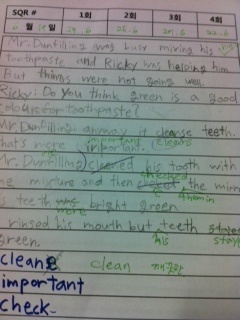 SQR # 1회 2회 3회 4회
월 일
Mr. Dunfilling was busy mixing his
toothpaste and Ricky was helping him.
But things were not going well.
Ricky: Do you think green is a good
colour for toothpaste?
Mr. Dunfilling: anyway it cleanse teeth.
important cleans
that's more important.
Mr. Dunfilling cleaned his tooth with
checked
mixture and then the mirror
teeth was bright green
were
rinsed his mouth but teeth stayes
green. his stay
cleans clean
important
check